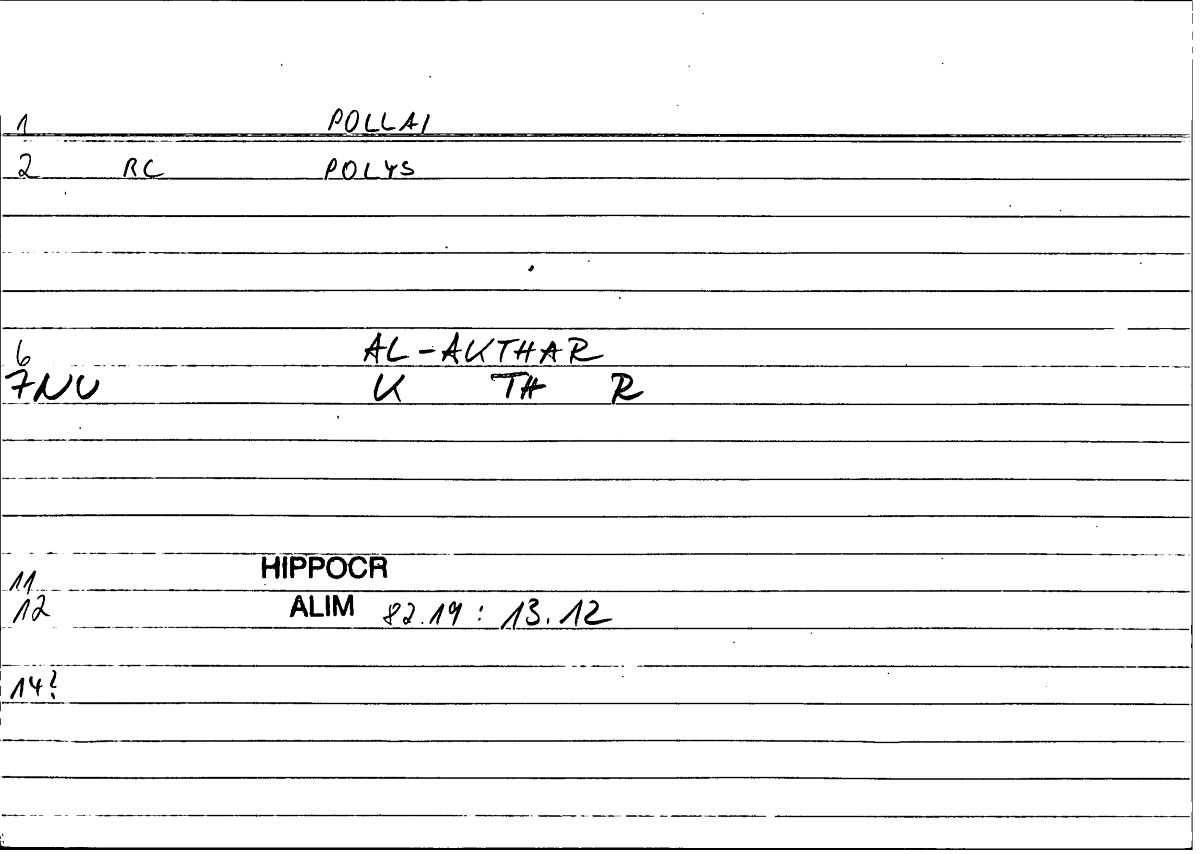 1 POLLAI
2 RC POLYS
6 AL-AKTHAR
7NU K TH R
11 HIPPOCR
12 ALIM 82.19 : 13.12
14?